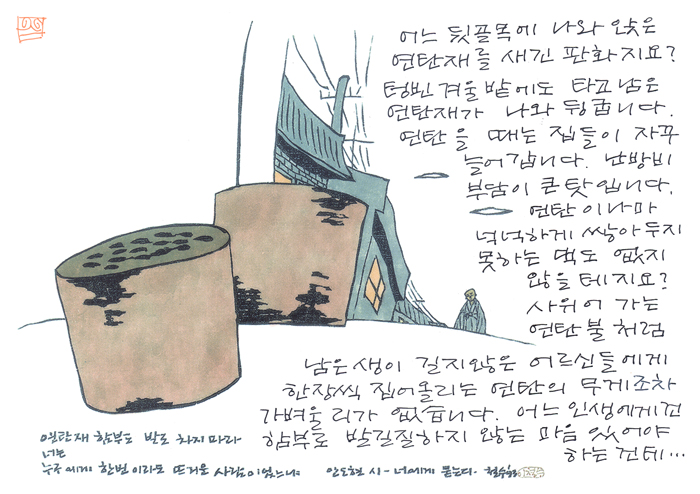 어느 뒷골목에 나와 앉은
연탄재를 새긴 판화지요?
텅빈 겨울 밭에도 타고 남은
연탄재가 나와 뒹굽니다.
연탄을 때는 집들이 자꾸
늘어갑니다. 난방비
부담이 큰 탓입니다.
연탄이나마
넉넉하게 쌓아두지
못하는 댁도 없지
않을 테지요?
사위어 가는
연탄불처럼
남은 생이 길지않은 어르신들에게
한장씩 집어올리는 연탄의 무게조차
가벼울리가 없습니다. 어느 인생에게건
함부로 발길질하지 않는 마음 있어야
하는건데…
연탄재 함부로 발로 차지 마라
너는
누구에게 한번이라도 뜨거운 사람이었느냐
안도현 시-너에게 묻는다. 철수